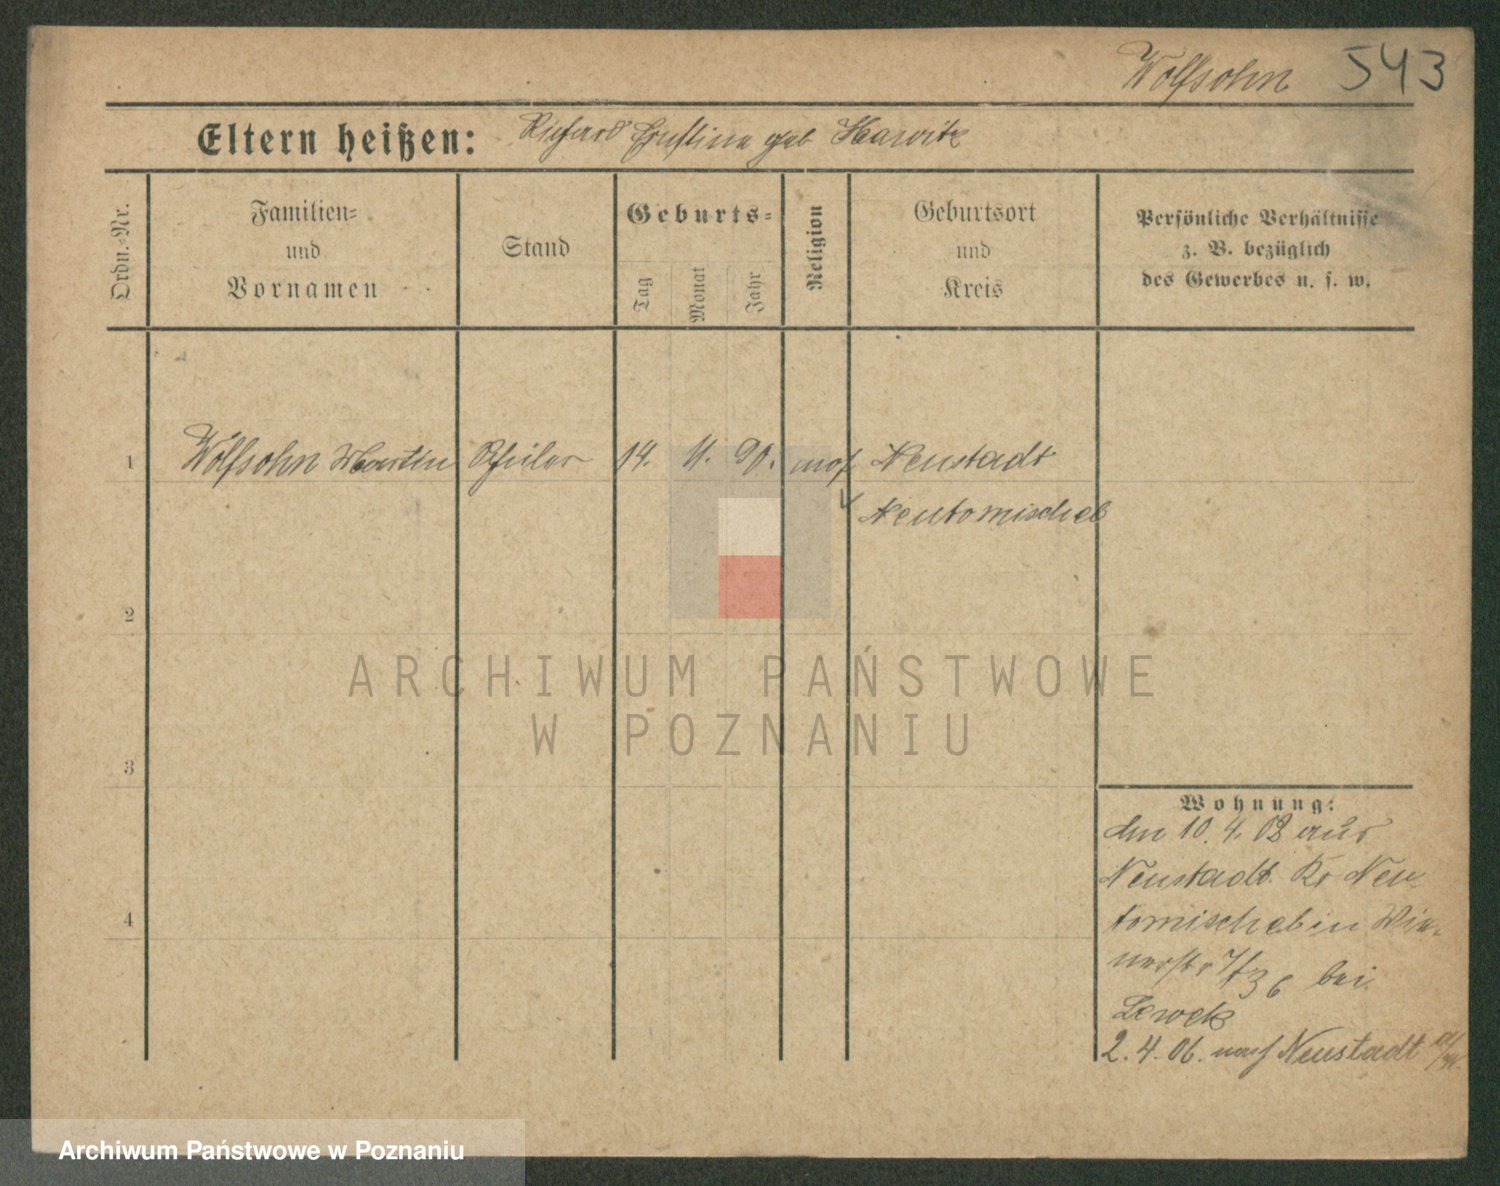 Wolfsohn 543
Eltern heißen: Richard Ernstine geb Hawitz
Ordn.-Nr.
Familien-
und
Vornamen
Stand
Geburts-
Tag
Monat
Jahr
Religion
Geburtsort
und
Kreis
Persönliche Verhältnisse
z. B. bezüglich
des Gewerbes u. s. w.
1 Wolfsohn Martin Schüler 14. 11. 90. mos Neustadt
Neutomischel
2
3
4
Wohnung:
den 10. 4. 02 aus
Neustadt Kr Neu
tomischel in Wie-
nerstr 7/36 bei
Lewek
2. 4. 06. nach Neustadt
ARCHIWUM PAŃSTWOWE
W POZNANIU
Archiwum Państwowe w Poznaniu